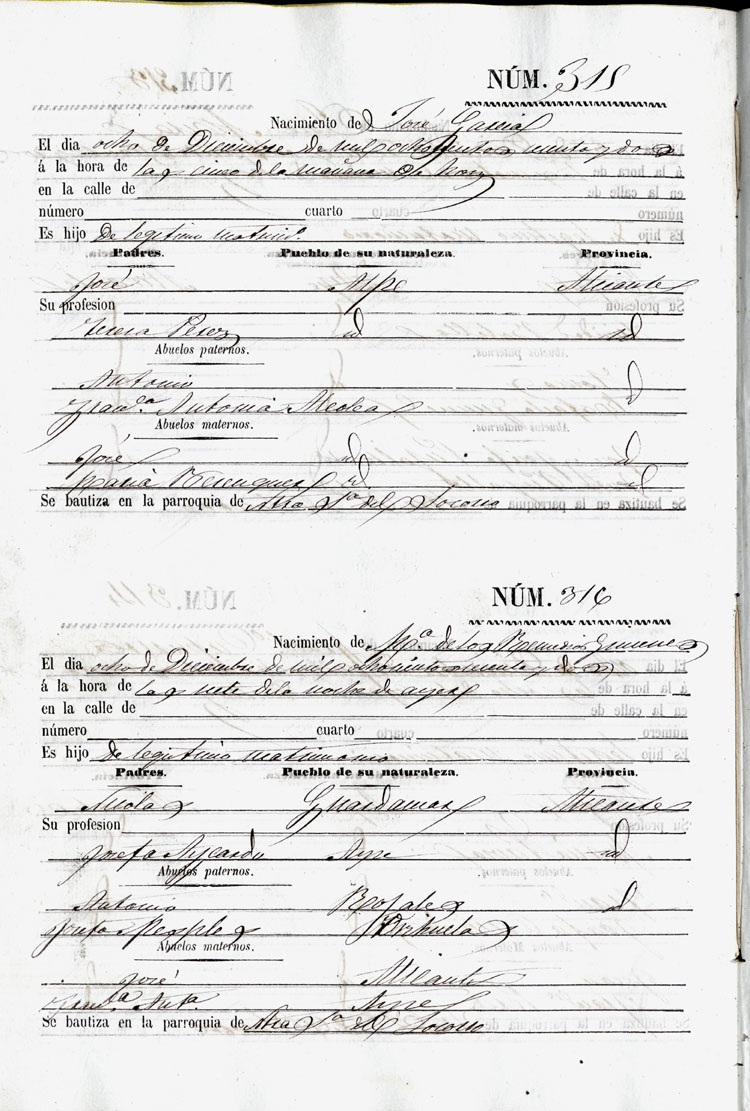 NÚM. 315
Nacimiento de José Garcia
El dia ocho de Diciembre de mil ochocientos y dos
á la hora de las cinco de la mañana de hoy
en la calle de
número cuarto
Es hijo De legitimo matrimo.
Padres. Pueblo de su naturaleza. Provincia.
José Aspe Alicante
Su profesion
Teresa Perez id id
Abuelos paternos.
Antonio id
Fran.ca Antonia Alcolea
Abuelos maternos.
José id id
Maria Berenguer id id
Se bautiza en la parroquia de Ntra Sra del Socorro
NÚM. 316
Nacimiento de Ma. de los Remedios Gimenez
El dia ocho de Diciembre de mil ochocientos y dos
á la hora de las siete de la noche de ayer
en la calle de
número cuarto
Es hijo De legitimo matrimonio
Padres. Pueblo de su naturaleza. Provincia.
Nicolas Guardamar Alicante
Su profesion
Josefa Aspe id
Abuelos paternos.
Antonio Rojales id
Josefa Orihuela
Abuelos maternos.
José Alicante
Fran.ca Anta. Aspe
Se bautiza en la parroquia de Ntra Sra del Socorro